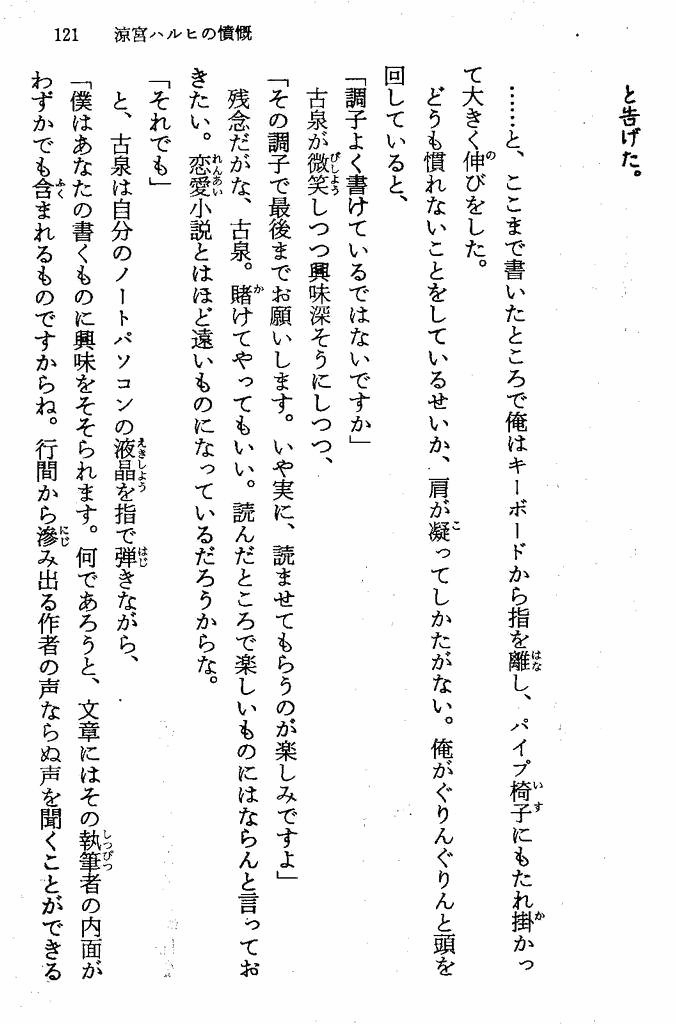 121　涼宮ハルヒの憤慨
と告げた。
……と、ここまで書いたところで俺はキーボードから指を離し、パイプ椅子にもたれ掛かっ
て大きく伸びをした。
どうも慣れないことをしているせいか、肩が凝ってしかたがない。俺がぐりんぐりんと頭を
回していると、
「調子よく書けているではないですか」
古泉が微笑しつつ興味深そうにしつつ、
「その調子で最後までお願いします。いや実に、読ませてもらうのが楽しみですよ」
残念だがな、古泉。賭けてやってもいい。読んだところで楽しいものにはならんと言ってお
きたい。恋愛小説とはほど遠いものになっているだろうからな。
「それでも」
と、古泉は自分のノートパソコンの液晶を指で弾きながら、
「僕はあなたの書くものに興味をそそられます。何であろうと、文章にはその執筆者の内面が
わずかでも含まれるものですからね。行間から滲み出る作者の声ならぬ声を聞くことができる